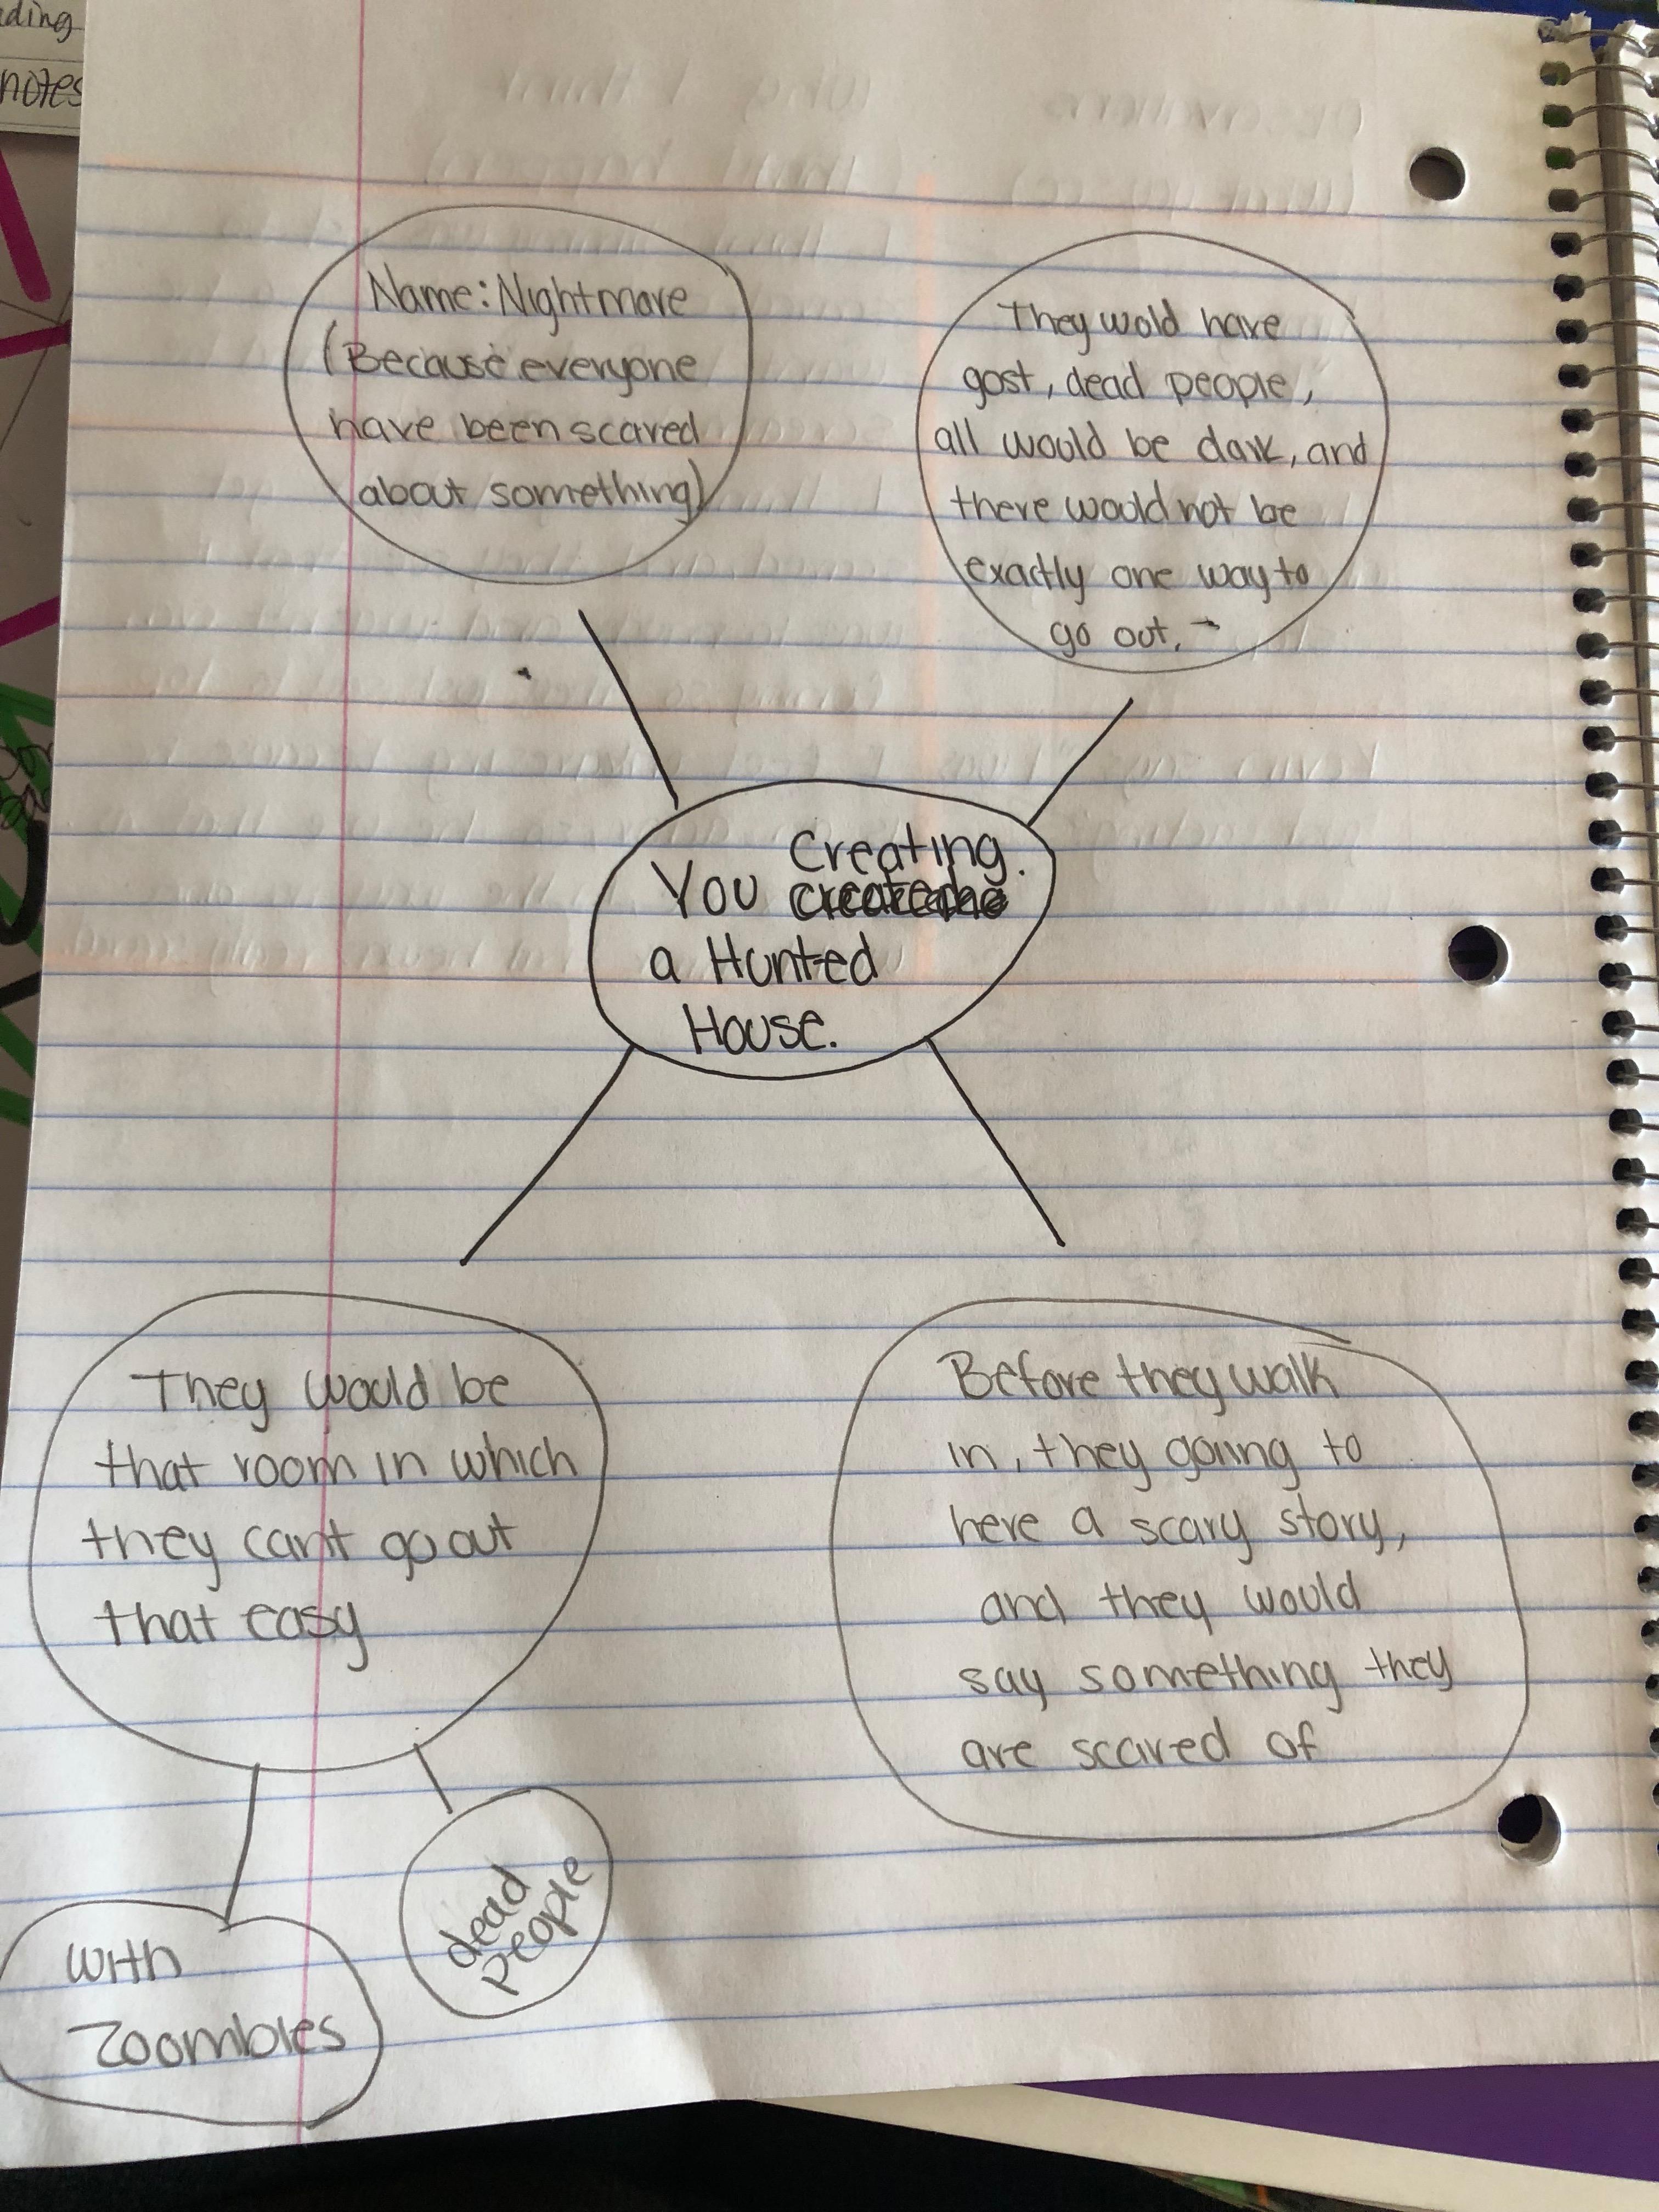 ding
notes
Name: Nightmare
(Because everyone
have been scared
about something)
They wold have
gost, dead people,
all would be dark, and
there would not be
exactly one way to
go out.
Creating.
You
a Hunted
House.
They would be
that room in which
they can't go out
that easy
Before they walk
in, they going to
here a scary story,
and they would
say something they
are scared of
dead
people
with
Zoombies